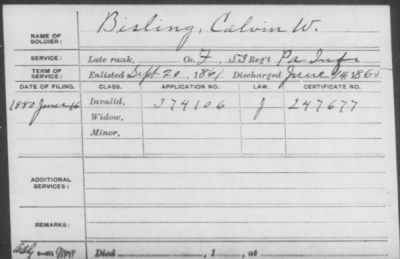 NAME OF SOLDIER: Bisling, Calvin W.
SERVICE: Late rank, Co. F, 53 Reg't Pa Inf.
TERM OF SERVICE: Enlisted Sept 20, 1861. Discharged June 1865
DATE OF FILING. CLASS. APPLICATION NO. LAW. CERTIFICATE NO.
1880 June 16 Invalid, 374106 J 247677
Widow,
Minor,
ADDITIONAL SERVICES:
REMARKS:
Died , 1 , at